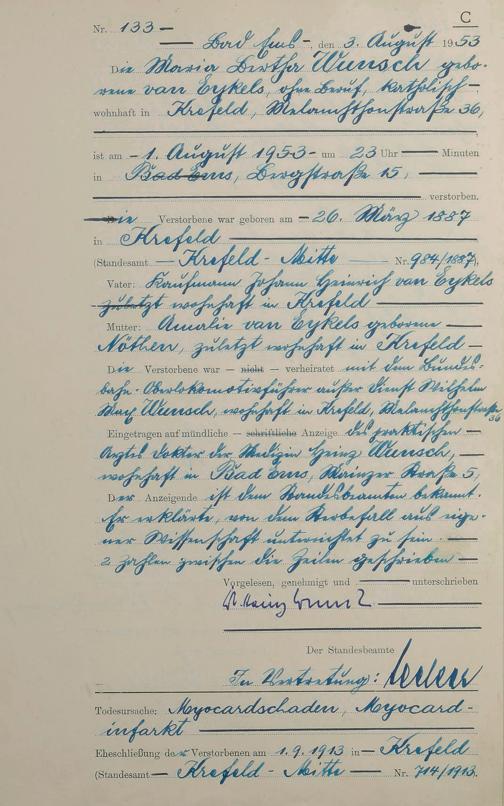 C
Nr. 133 —
— Bad Ems —, den 3. August 1953
Die Maria Bertha Wunsch gebo-
rene van Eykels, ohne Beruf, katholisch —,
wohnhaft in Krefeld, Melanchthonstraße 36,
ist am — 1. August 1953 — um 23 Uhr — Minuten
in Bad Ems, Bergstraße 15, —
— verstorben.
Die Verstorbene war geboren am — 26. März 1887
in Krefeld —
(Standesamt — Krefeld - Mitte — Nr. 984/1887),
Vater: Kaufmann Johann Heinrich van Eykels
zuletzt wohnhaft in Krefeld —
Mutter: Amalie van Eykels geborene —
Nöthen, zuletzt wohnhaft in Krefeld —
Die Verstorbene war — nicht — verheiratet mit dem Bundes-
bahn-Oberlokomotivführer außer Dienst Wilhelm
Max Wunsch, wohnhaft in Krefeld, Melanchthonstraße 36
Eingetragen auf mündliche — schriftliche Anzeige des praktischen —
Arztes Doktor der Medizin Heinz Wunsch, —
wohnhaft in Bad Ems, Mainzer Straße 5.
Der Anzeigende ist dem Standesbeamten bekannt.
Er erklärte, von dem Sterbefall aus eige-
ner Wissenschaft unterrichtet zu sein. —
2 Zahlen zwischen die Zeilen geschrieben —
Vorgelesen, genehmigt und — unterschrieben
Heinz Wunsch
Der Standesbeamte
In Vertretung:
Todesursache: Myocardschaden, Myocard-
infarkt —
Eheschließung der Verstorbenen am 1.9.1913 in — Krefeld
(Standesamt — Krefeld - Mitte — Nr. 714/1913.